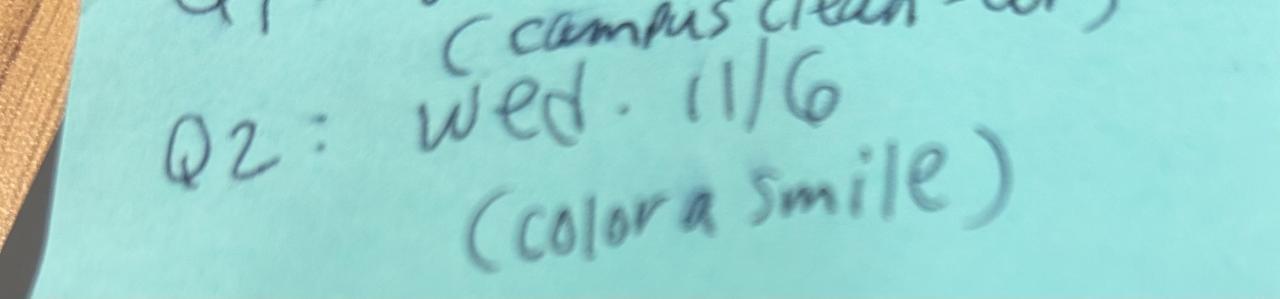 Q1
(campus clean-up)
Q2: Wed. 11/6
(color a smile)